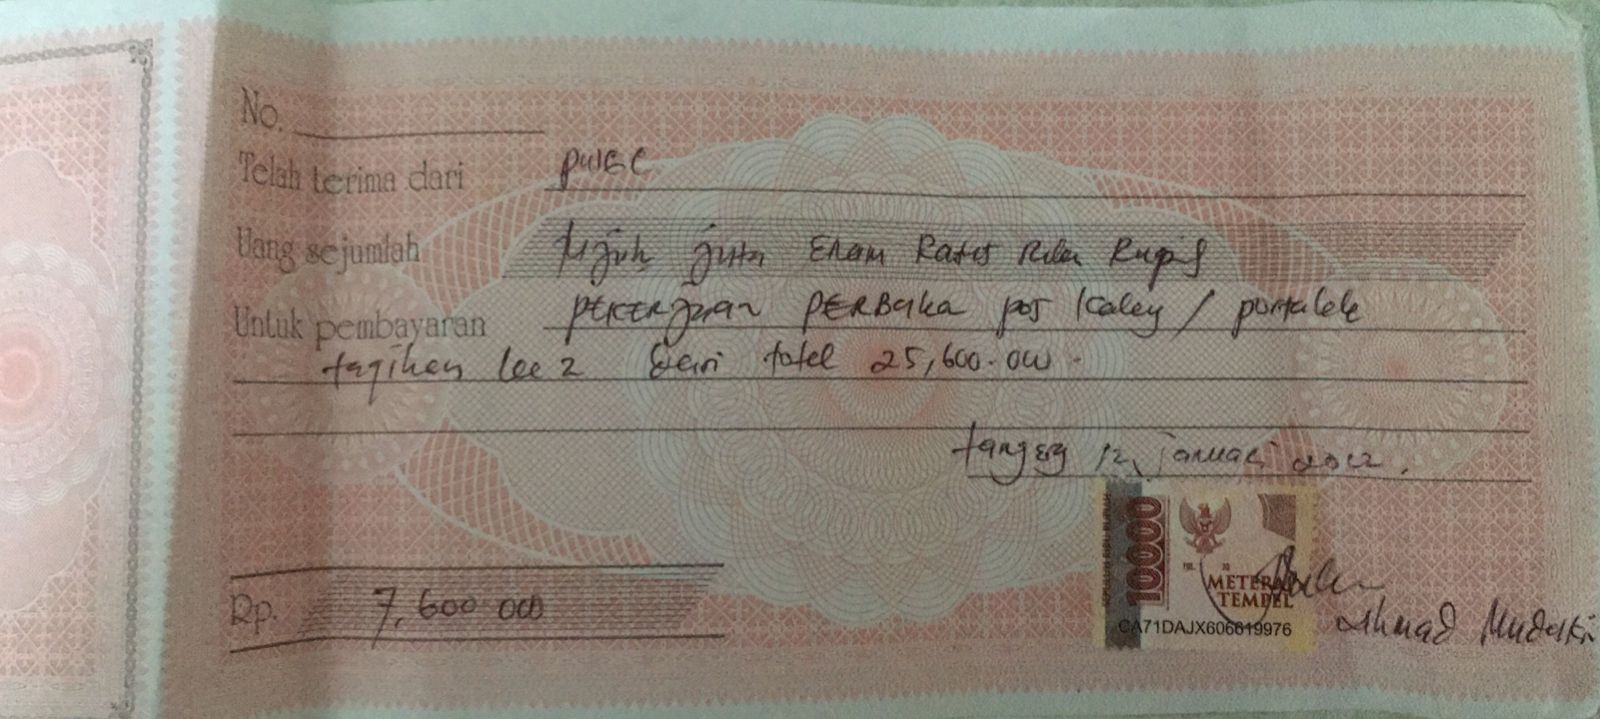 No.
Telah terima dari PWGC
Uang sejumlah tujuh juta Enam Ratus Ribu Rupiah
Untuk pembayaran PEKERJAAN PERBAIKA pos
tagihan ke 2 Dari total 25,600.000
12, januari
10000
METERAI
TEMPEL
CA71DAJX606619976
Rp. 7,600 000
Ahmad